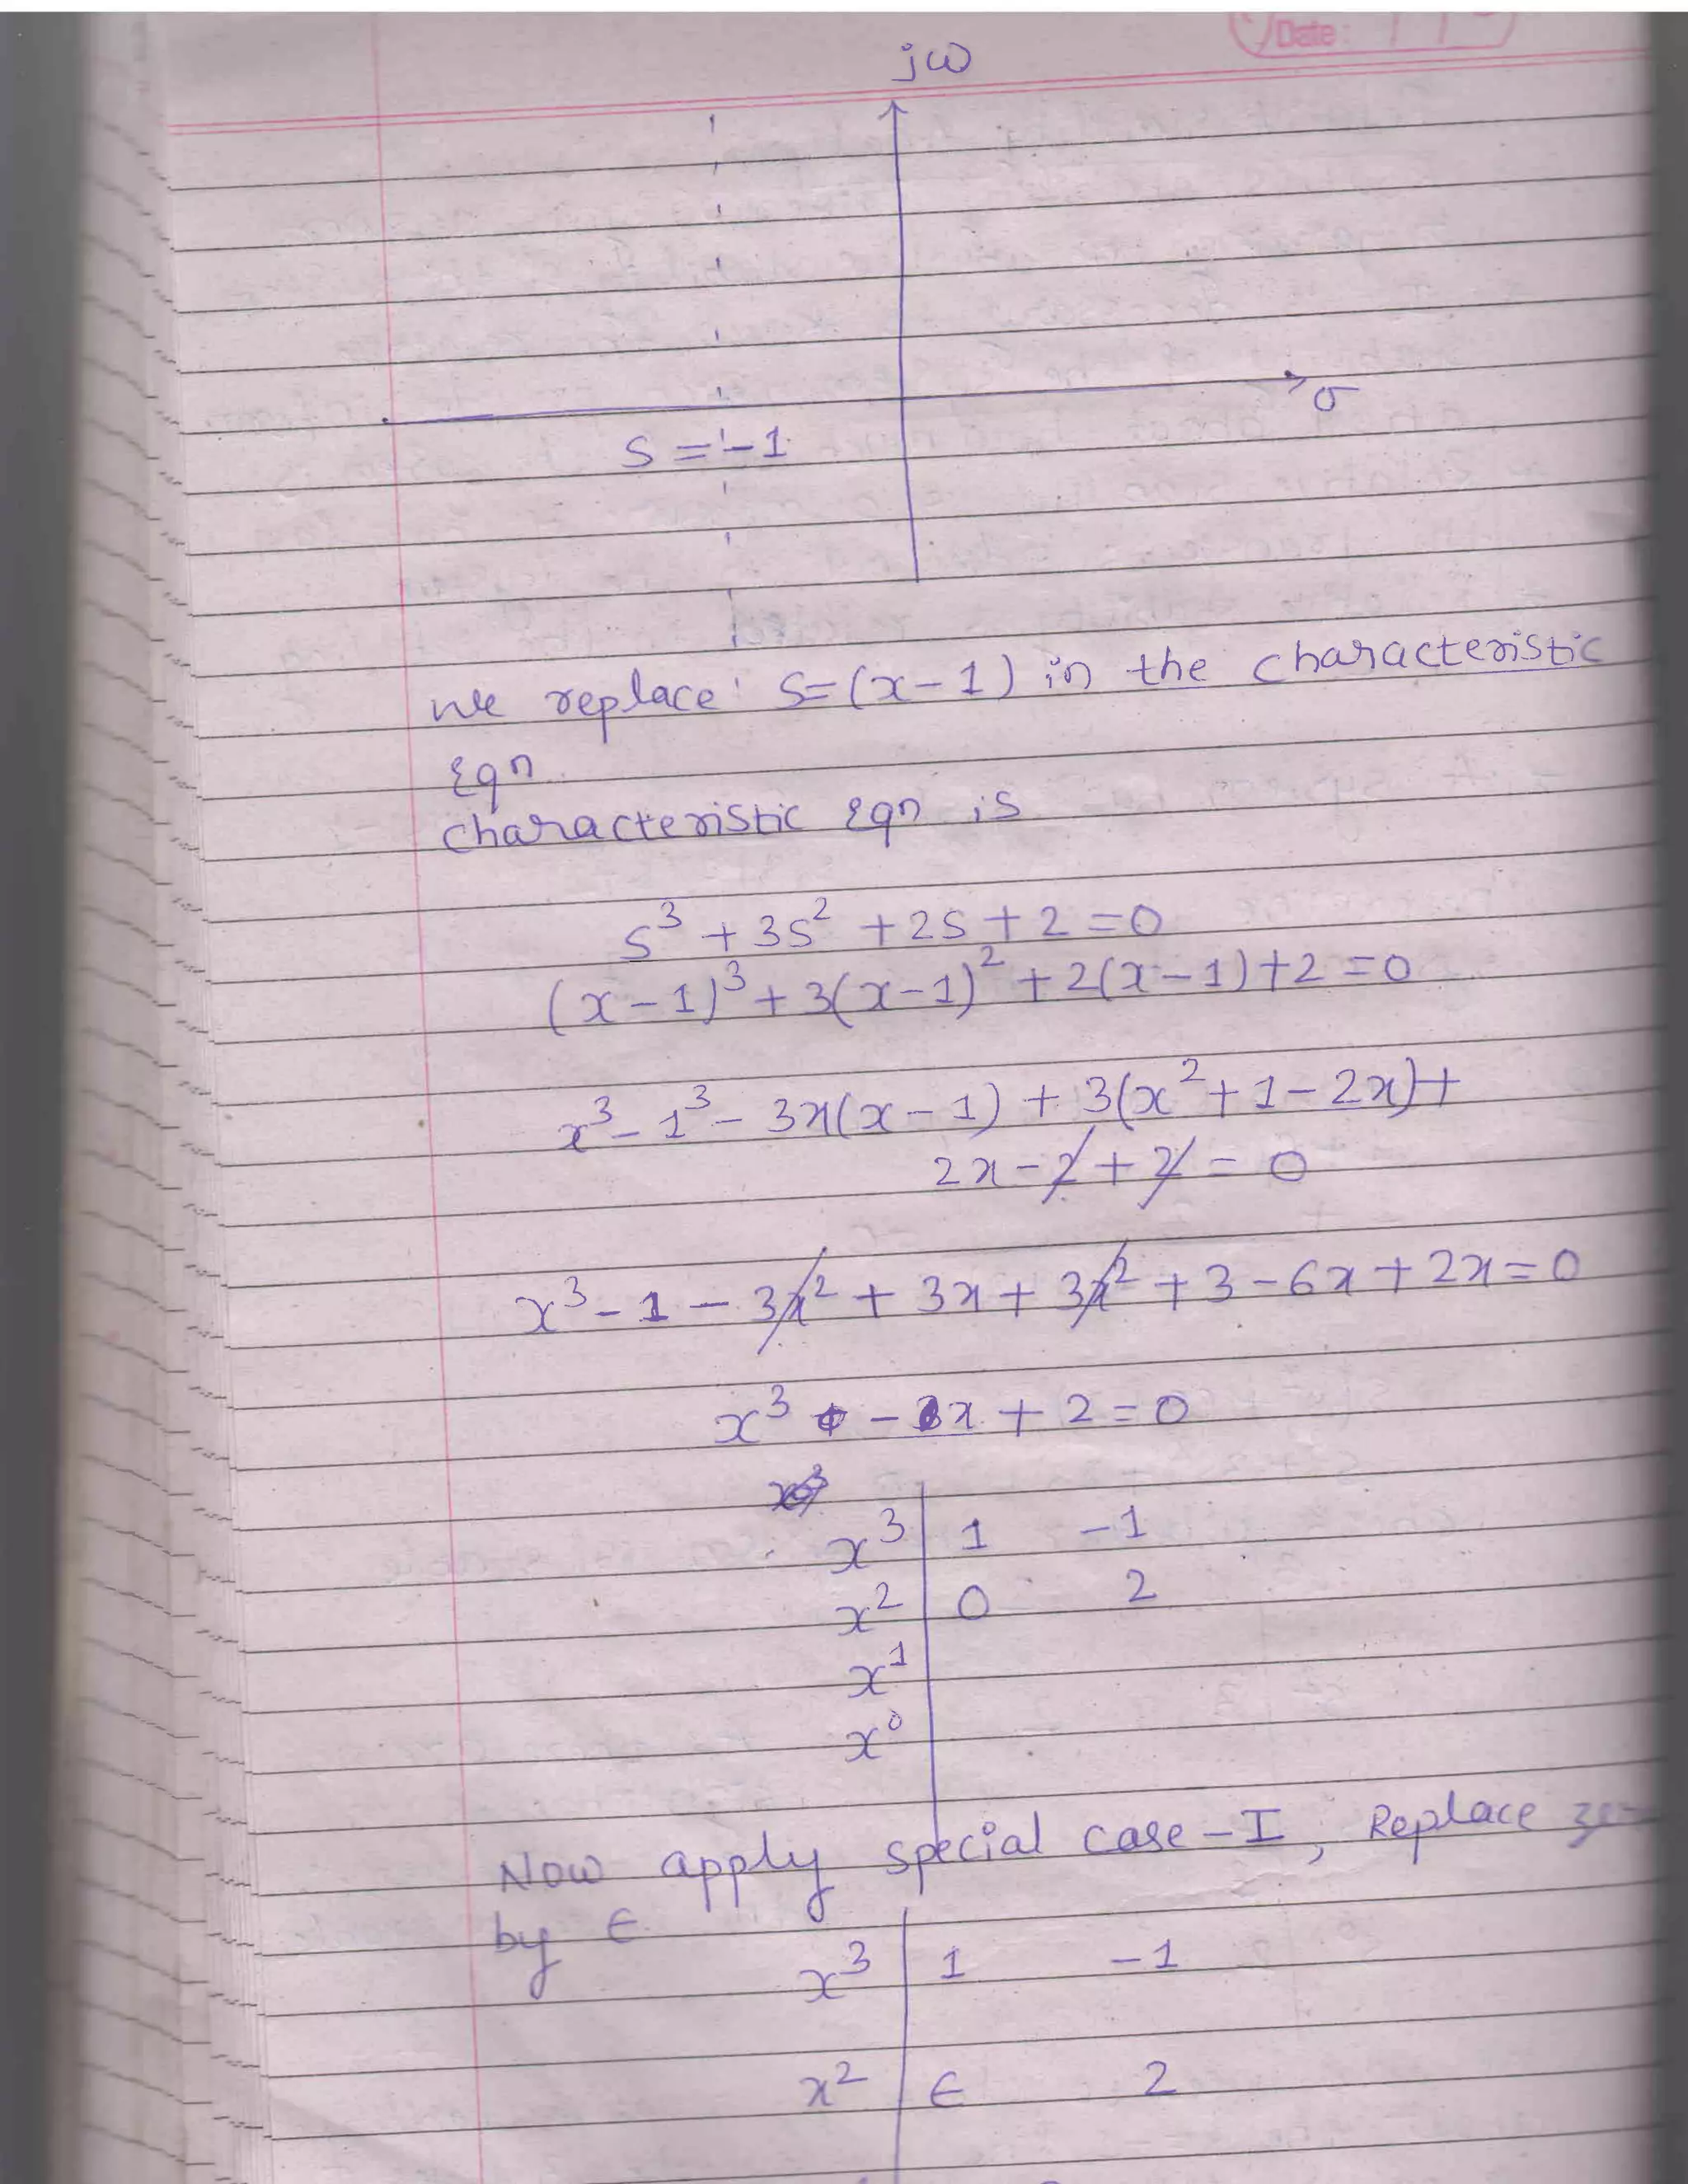 Date:
jω
σ
S = -1
we replace S=(x-1) in the characteristic
Eqn
characteristic Eqn is
S³ + 3S² + 2S + 2 = 0
(x-1)³ + 3(x-1)² + 2(x-1) + 2 = 0
x³ - 1³ - 3x(x-1) + 3(x² + 1 - 2x) +
2x - 2 + 2 = 0
x³ - 1 - 3x² + 3x + 3x² + 3 - 6x + 2x = 0
x³ - x + 2 = 0
x³ 1 -1
x² 0 2
x¹
x⁰
Now apply special case-I, Replace
by ϵ
x³ 1 -1
x² ϵ 2